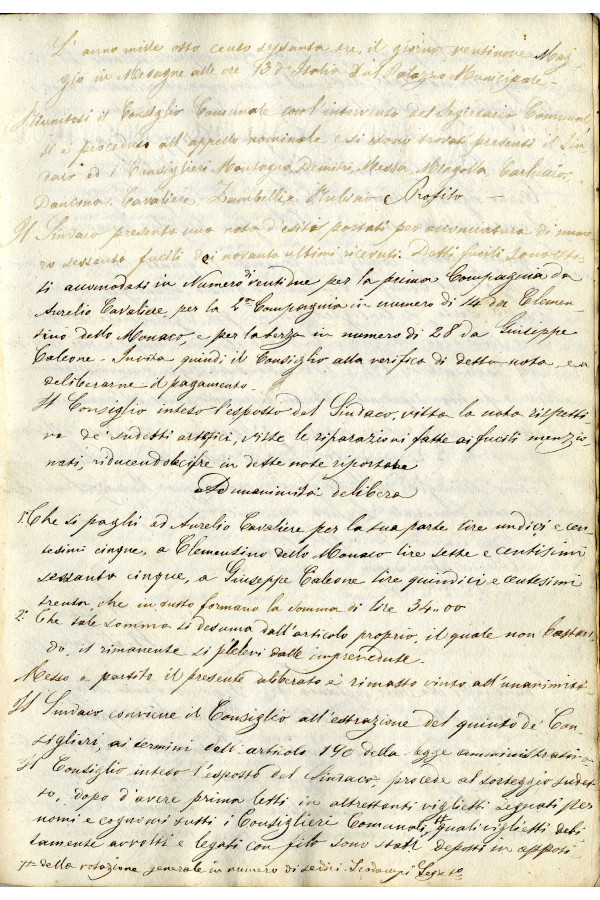 L'anno mille otto cento sessanta tre, il giorno ventinove Mag-
gio in Mesagne alle ore 13 d'Italia Dal Palazzo Municipale-
Riunitosi il Consiglio Comunale con l'intervento del Segretario Comunale,
si è proceduto all'appello nominale e si sono trovati presenti il Sin-
daco ed i Consiglieri Montagna Demitri, Messa, Magolla
Dancona, Cavaliere, Zambelli e Rubino Profilo —
Il Sindaco presenta una nota d'esiti portati per acconciatura di nume-
ro sessanta fucili dei novanta ultimi ricevuti. Detti fucili sono sta-
ti accomodati in Numero di ventidue per la prima Compagnia da
Aurelio Cavaliere, per la 2ª Compagnia in numero di 14 da Clemen-
tino dello Monaco, e per la terza in numero di 28 da Giuseppe
Caleone - Invita quindi il Consiglio alla verifica di detta nota, e a
deliberarne il pagamento.
Il Consiglio inteso l'esposto del Sindaco, vista la nota rispetti-
va de' sudetti artefici, viste le riparazioni fatte ai fucili menzio
nati, riducendo le cifre in dette note riportate
Ad unanimità delibera
1º Che si paghi ad Aurelio Cavaliere per la sua parte lire undici e cen-
tesimi cinque, a Clementino dello Monaco lire sette e centisimi
sessanta cinque, a Giuseppe Caleone lire quindici e centesimi
trenta, che in tutto formano la somma di lire 34.00
2º Che tale somma si desuma dall'articolo proprio, il quale non bastan-
do, il rimanente si prelevi dalle imprevedute.
Messo a partito il presente deliberato è rimasto vinto all'unanimità-
Il Sindaco conviene il Consiglio all'estrazione del quinto de' Con-
siglieri, ai termini dell'articolo 190 della legge amministrativa-
Il Consiglio inteso l'esposto del Sindaco, procede al sorteggio sudet-
to, dopo d'avere prima letti in altrettanti viglietti segnati per
nomi e cognomi tutti i Consiglieri Comunali, # quali viglietti debi
tamente avvolti e legati con filo sono stati deposti in apposi-
# della votazione generale in numero di sedici Scodampi Segreto